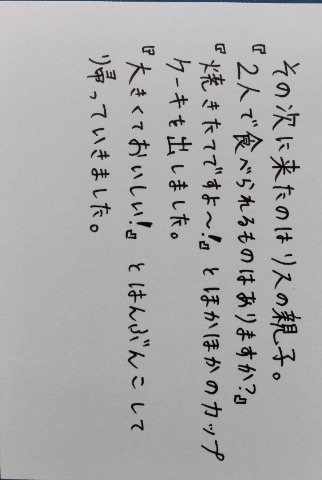 その次に来たのはリスの親子。
『2人で食べられるものはありますか?』
『焼きたてですよ〜!』とほかほかのカップ
ケーキを出しました。
『大きくておいしい!』とはんぶんこして
帰っていきました。